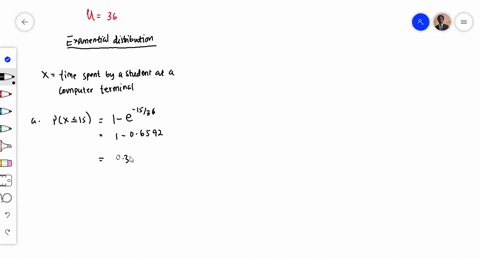 U = 36
Exponential distribution
X = time spent by a student at a
computer terminal
a. P(X ≤ 15) = 1 - e^-15/36
= 1 - 0.6592
= 0.3